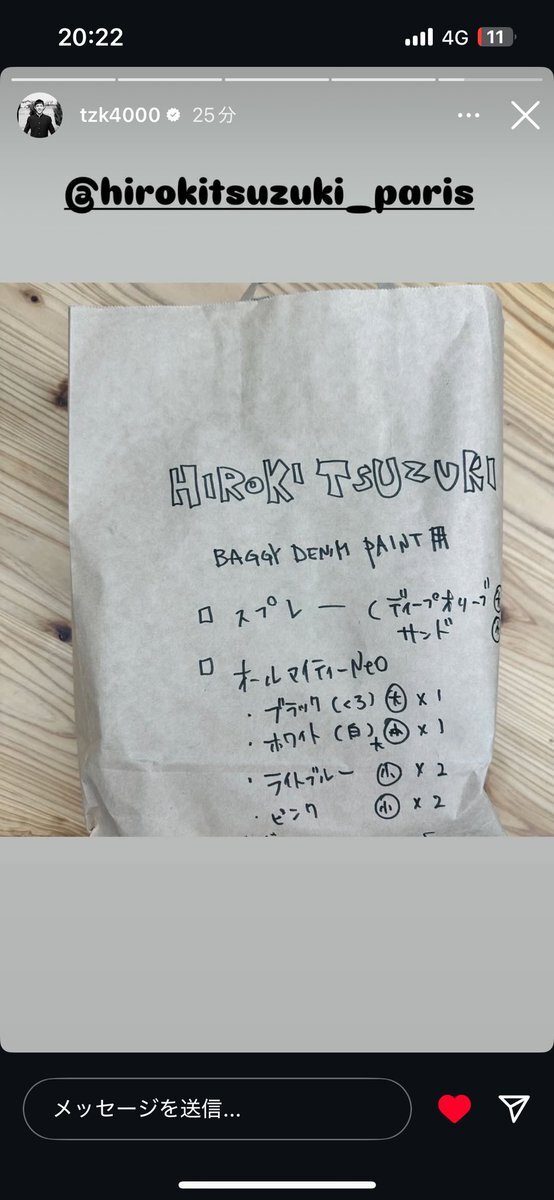 20:22
4G 11
tzk4000 25分
@hirokitsuzuki_paris
HIROKI TSUZUKI
BAGGY DENIM PAINT用
□ スプレー (ディープオリーブ
サンド
□ オールマイティーNeo
・ブラック(くろ) 大 x 1
・ホワイト(白) 大 x 1
・ライトブルー 小 x 2
・ピンク 小 x 2
メッセージを送信...